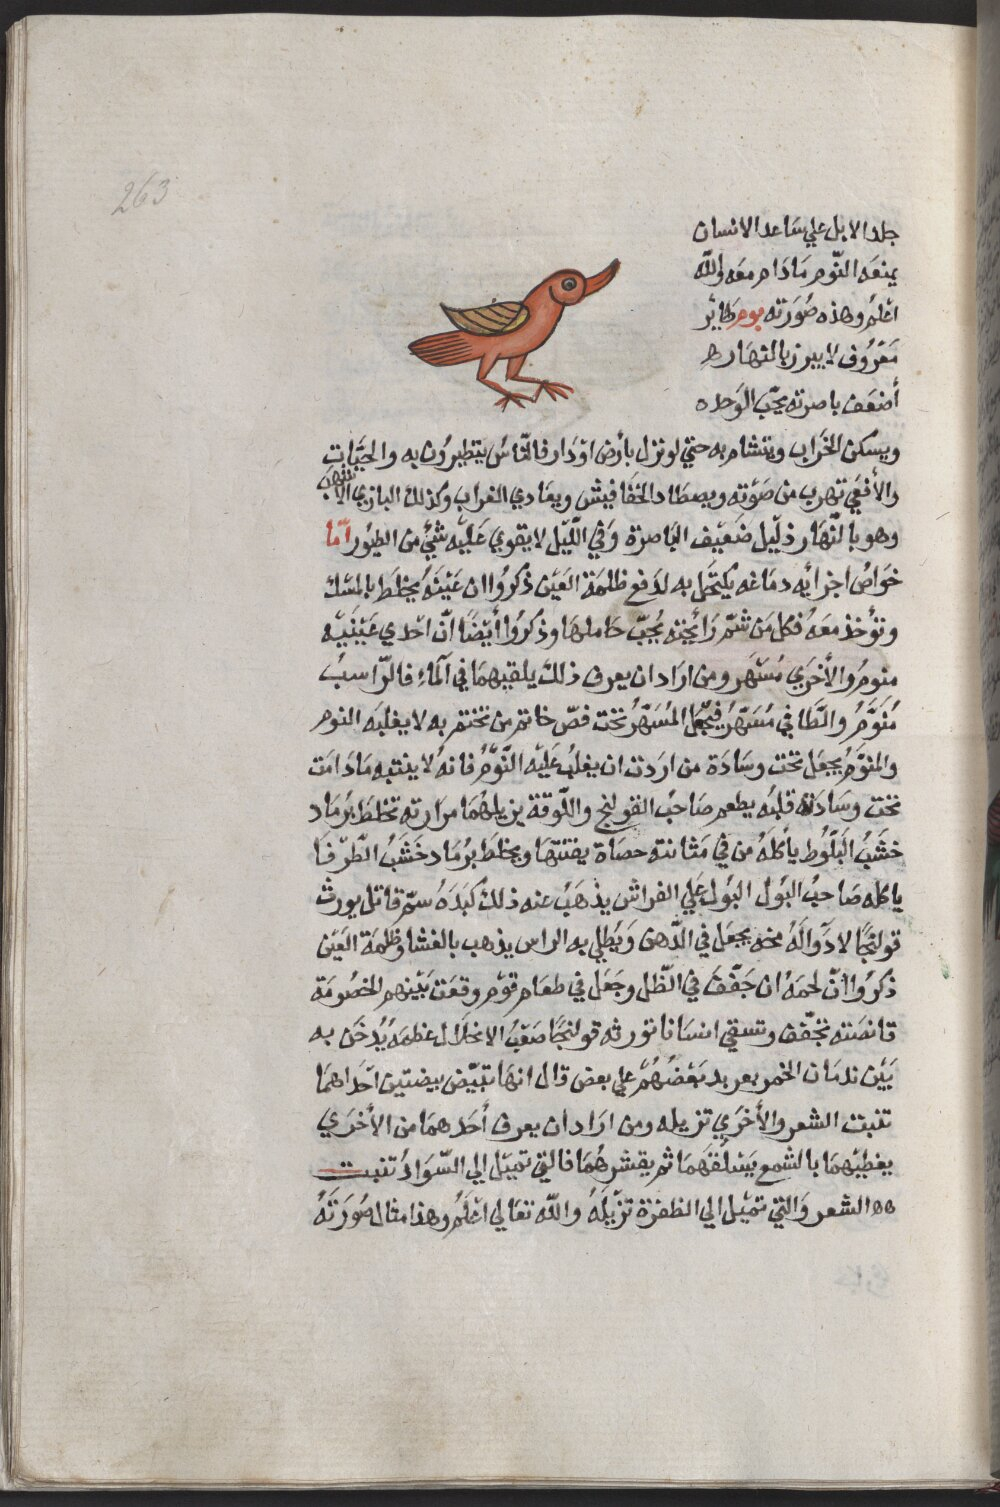 263
جلد الابل علي ساعد الانسان
يمنعه النّوم مادام معه والله
اعلم وهذه صورته بوم طاير
معروف لا يبرز بالنهار
أضعف باصرته يحبّ الوحده
ويسكن الخراب ويتشام به حتي لو نزل بأرض او دار فالنّاس يتطيرون به والحيّات
والأفعي تهرب من صوته ويصطاد الخفافيش ويعادي الغراب وكذلك البازي
وهو بالنّهار ذليل ضعيف الباصرة وفي اللّيل لا يقوي عليه شئ من الطيور امّا
خواص اجزايه دماغه يكتحل به لدفع ظلمة العين ذكروا ان عينه يخلط بالمسك
وتؤخذ معه فكل من شمّ رايحته يحبّ حاملها وذكروا أيضًا انّ احدي عينيه
منوم والأخري مسهر ومن اراد ان يعرف ذلك يلقيهما في الماء فالرّاسب
منوّم والطافي مسهّر فيجعل المسهّر تحت فصّ خاتم من تختم به لا يغلبه النوم
والمنوّم يجعل تحت وسادة من اردت ان يغلب عليه النّوم فانه لا ينتبه مادامت
تحت وسادته قلبه يطعم صاحب القولنج واللّوقة يزيلهما مرارته تخلط برماد
خشب البلّوط يأكله من في مثانته حصاة يفتتها ويخلط برماد خشب الطّرفا
ياكله صاحب البول البول علي الفراش يذهب عنه ذلك كبده سمّ قاتل يورث
قولنجًا لا دوا له مخه يجعل في الدّهن ويطلي به الراس يذهب بالغشا وظلمة العين
ذكروا انّ لحمه ان جفّف في الظّل وجعل في طعام قوم وقعت بينهم الخصومة
قانصته تجفّف وتسقي انسانا تورثه قولنجًا صعب الانحلال عظمه يدخن به
بين ندمان الخمر يعربد بعضهم علي بعض قال انها تبيّض بيضتين احداهما
تنبت الشعر والأخري تزيله ومن اراد ان يعرف أحدهما من الأخري
يغطيهما بالشمع يسلقهما ثم يقشرهما فالتي تميل الي السّواد تنبت
الشعر والتي تميل الي الظفرة تزيله والله تعالي اعلم وهذا مثال صورته